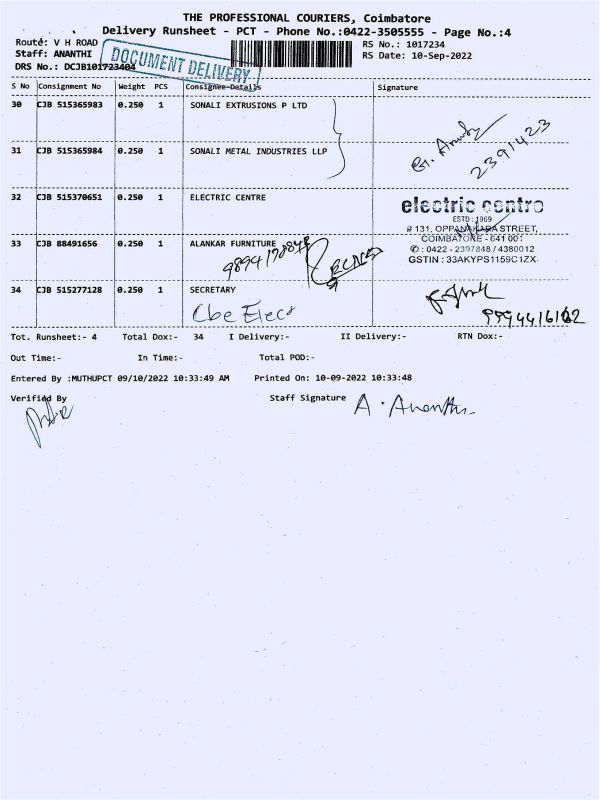 THE PROFESSIONAL COURIERS, Coimbatore
Delivery Runsheet - PCT - Phone No.:0422-3505555 - Page No.:4
Route: V H ROAD
Staff: ANANTHI
DRS No.: DCJB101723404
DOCUMENT DELIVERY
RS No.: 1017234
RS Date: 10-Sep-2022
S No Consignment No Weight PCS Consignee Details Signature
30 CJB 515365983 0.250 1 SONALI EXTRUSIONS P LTD
31 CJB 515365984 0.250 1 SONALI METAL INDUSTRIES LLP
2391423
32 CJB 515370651 0.250 1 ELECTRIC CENTRE
electric centre
ESTD : 1969
# 131, OPPANAKARA STREET,
COIMBATORE - 641 001
✆ : 0422 - 2397848 / 4380012
GSTIN : 33AKYPS1159C1ZX
33 CJB 88491656 0.250 1 ALANKAR FURNITURE
34 CJB 515277128 0.250 1 SECRETARY
Cbe Elect
9994416162
Tot. Runsheet:- 4 Total Dox:- 34 I Delivery:- II Delivery:- RTN Dox:-
Out Time:- In Time:- Total POD:-
Entered By :MUTHUPCT 09/10/2022 10:33:49 AM Printed On: 10-09-2022 10:33:48
Verified By Staff Signature A. Ananthi